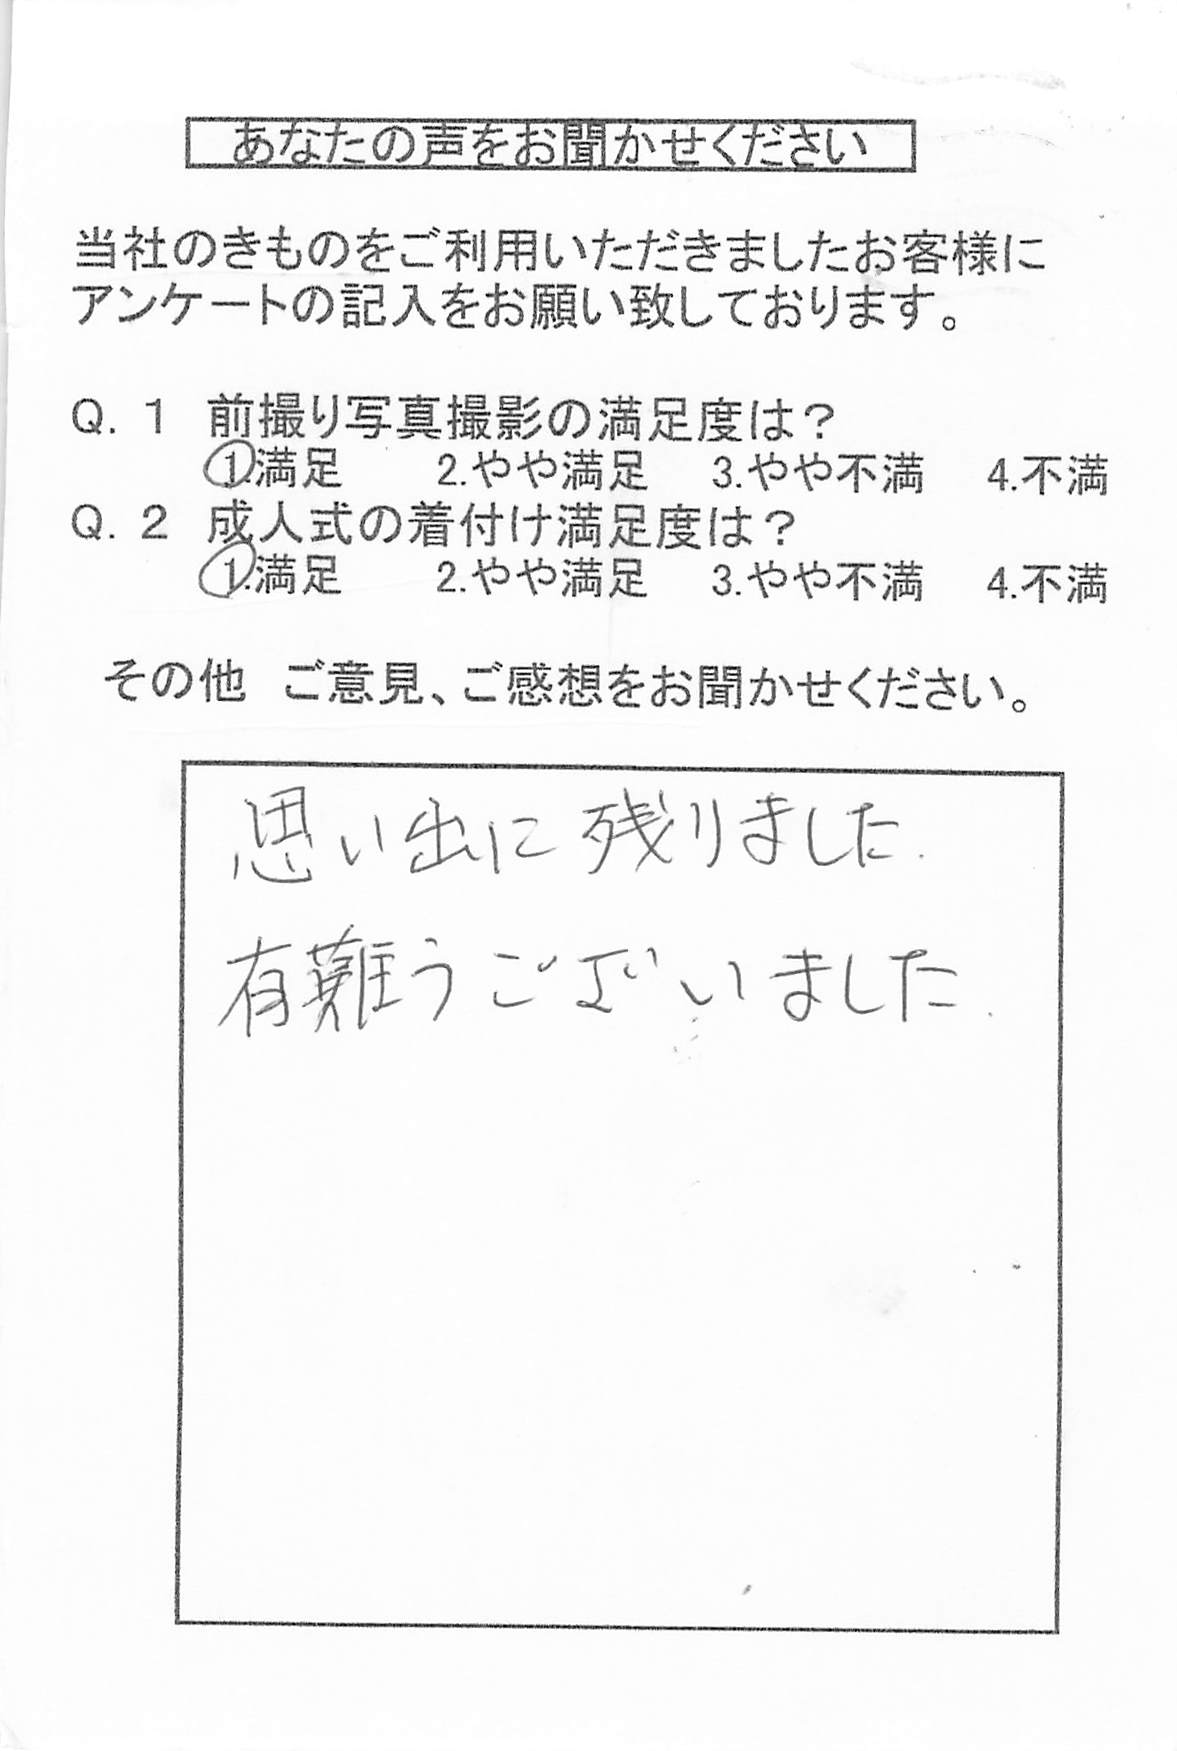 あなたの声をお聞かせください
当社のきものをご利用いただきましたお客様に
アンケートの記入をお願い致しております。
Q. 1 前撮り写真撮影の満足度は？
1.満足 2.やや満足 3.やや不満 4.不満
Q. 2 成人式の着付け満足度は？
1.満足 2.やや満足 3.やや不満 4.不満
その他 ご意見、ご感想をお聞かせください。
思い出に残りました.
有難うございました.